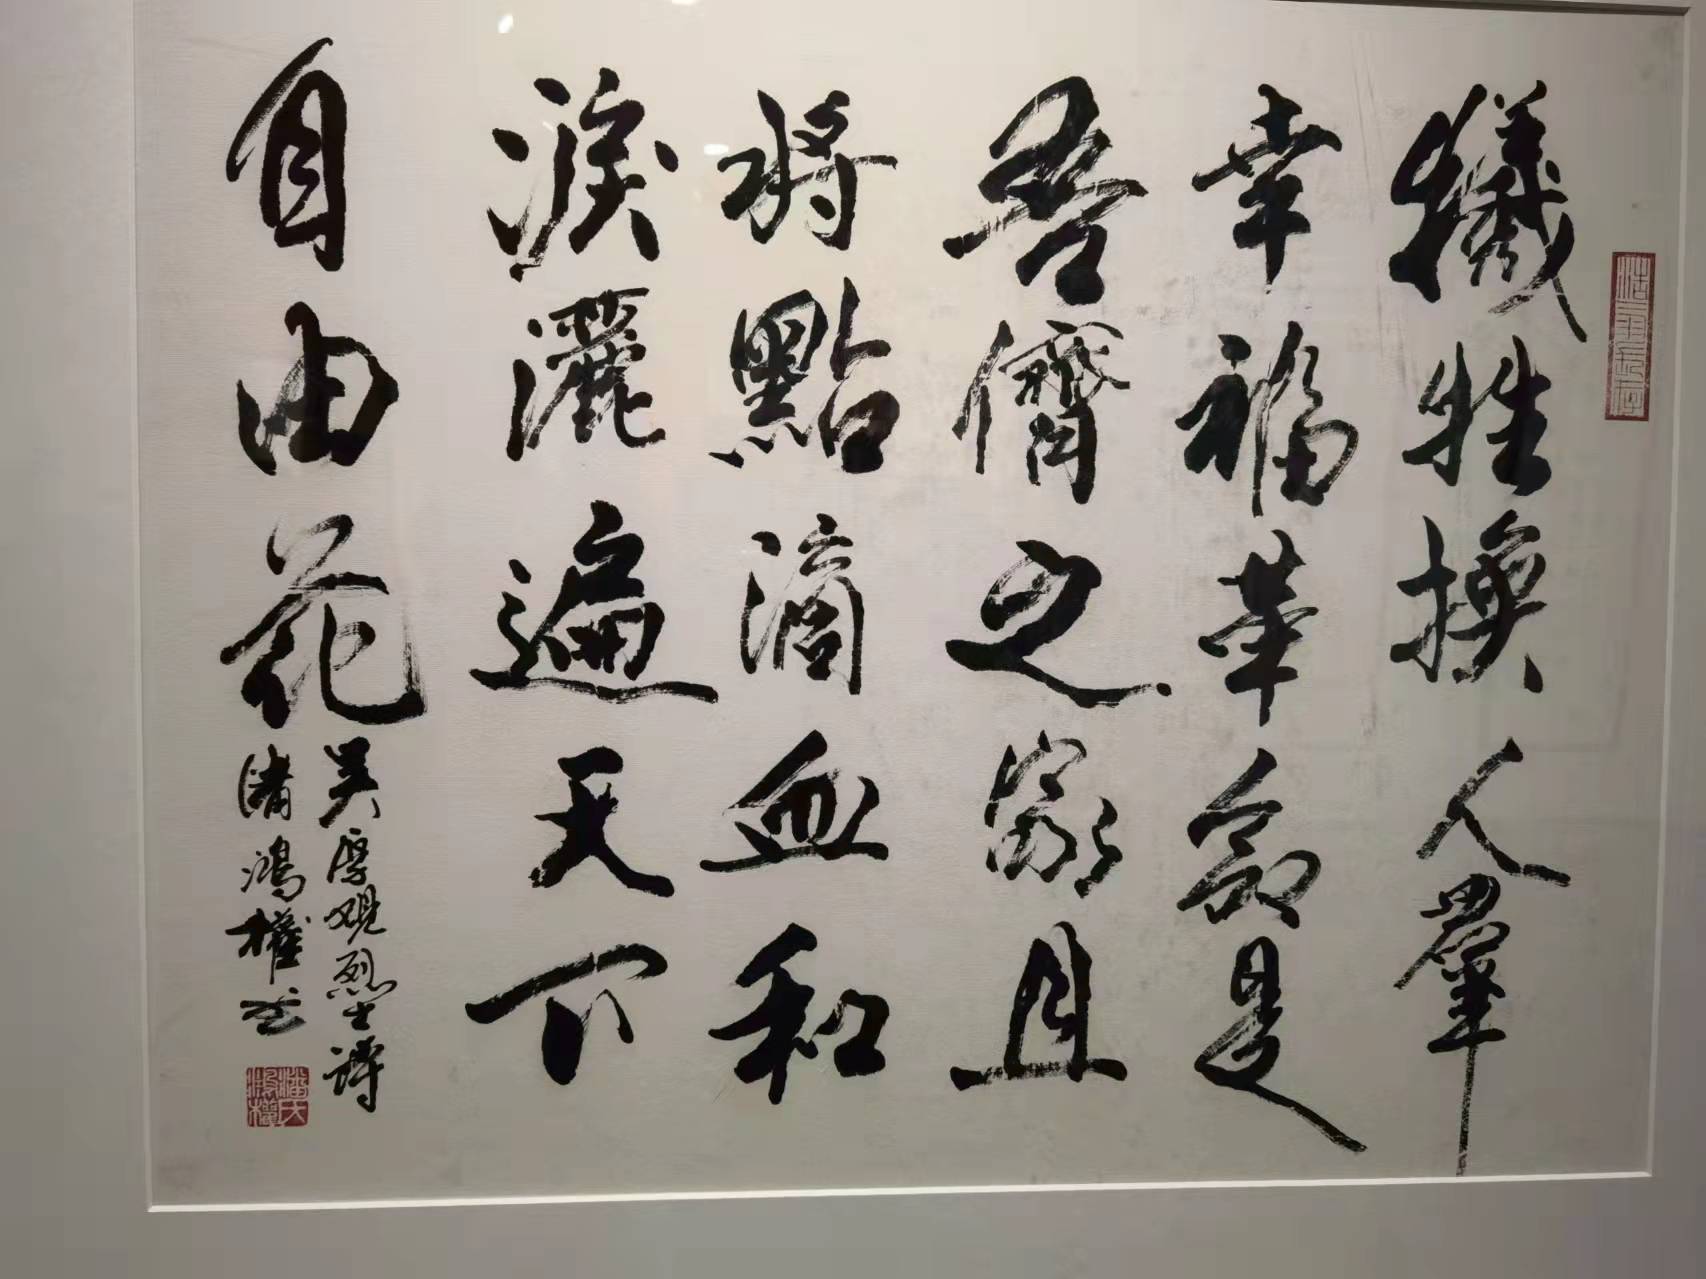 犧牲換人羣
幸福革命是
吾儕之家且
將點滴血和
淚灑遍天下
自由花
吴厚觀烈士詩
潘鴻權书
潘氏鴻權